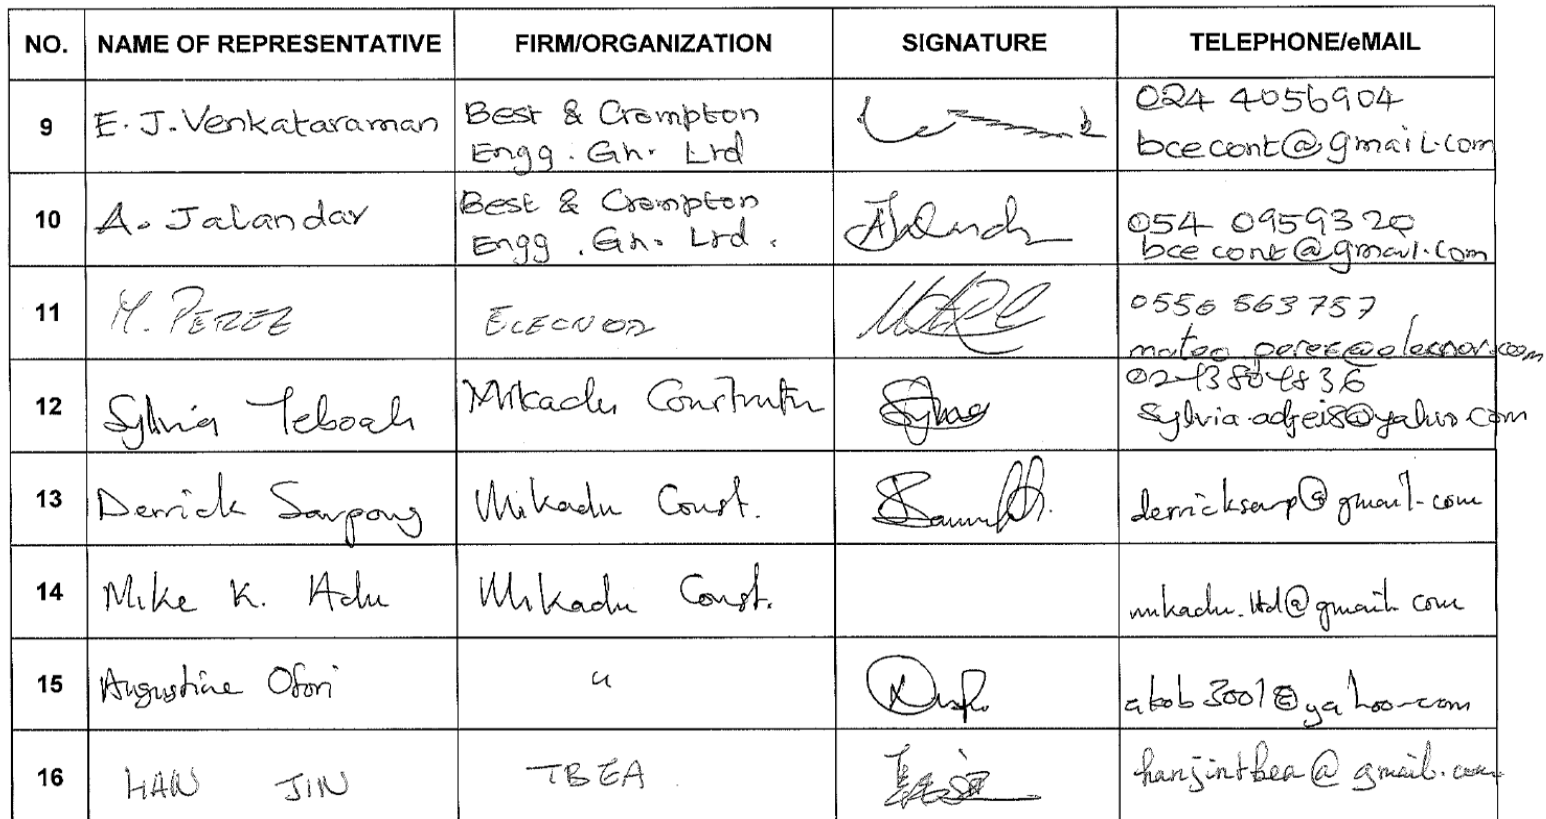 NO. NAME OF REPRESENTATIVE FIRM/ORGANIZATION SIGNATURE TELEPHONE/eMAIL
9 E. J. Venkataraman Best & Crompton 024 4056904
Engg. Gh. Ltd bcecont@gmail.com
10 A. Jalandar Best & Crompton 054 0959320
Engg. Gh. Ltd. bcecont@gmail.com
11 M. PEREZ ELECNOR 0556 563757
mateo.perez@elecnor.com
12 Sylvia Yeboah Mikadu Construction
sylvia.adjei8@yahoo.com
13 Derrick Sarpong Mikadu Const. derricksarp@gmail.com
14 Mike K. Adu Mikadu Const. mikadu.ltd@gmail.com
15 Augustine Ofori " akob3001@yahoo.com
16 HAN JIN TBEA hanjintbea@gmail.com